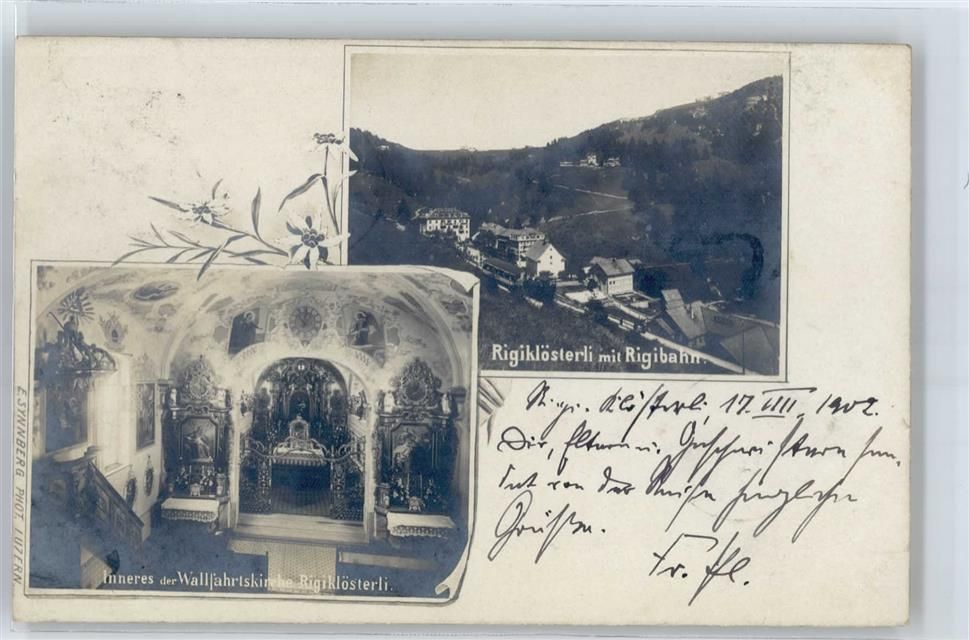 Rigiklösterli mit Rigibahn.
Rigi-Klösterli, 17. VIII. 1902.
Dir, Eltern u. Geschwistern sen-
det von der Reise herzliche
Grüße.
Fr. Pfl.
Inneres der Wallfahrtskirche Rigiklösterli.
E.SYNNBERG PHOT. LUZERN.